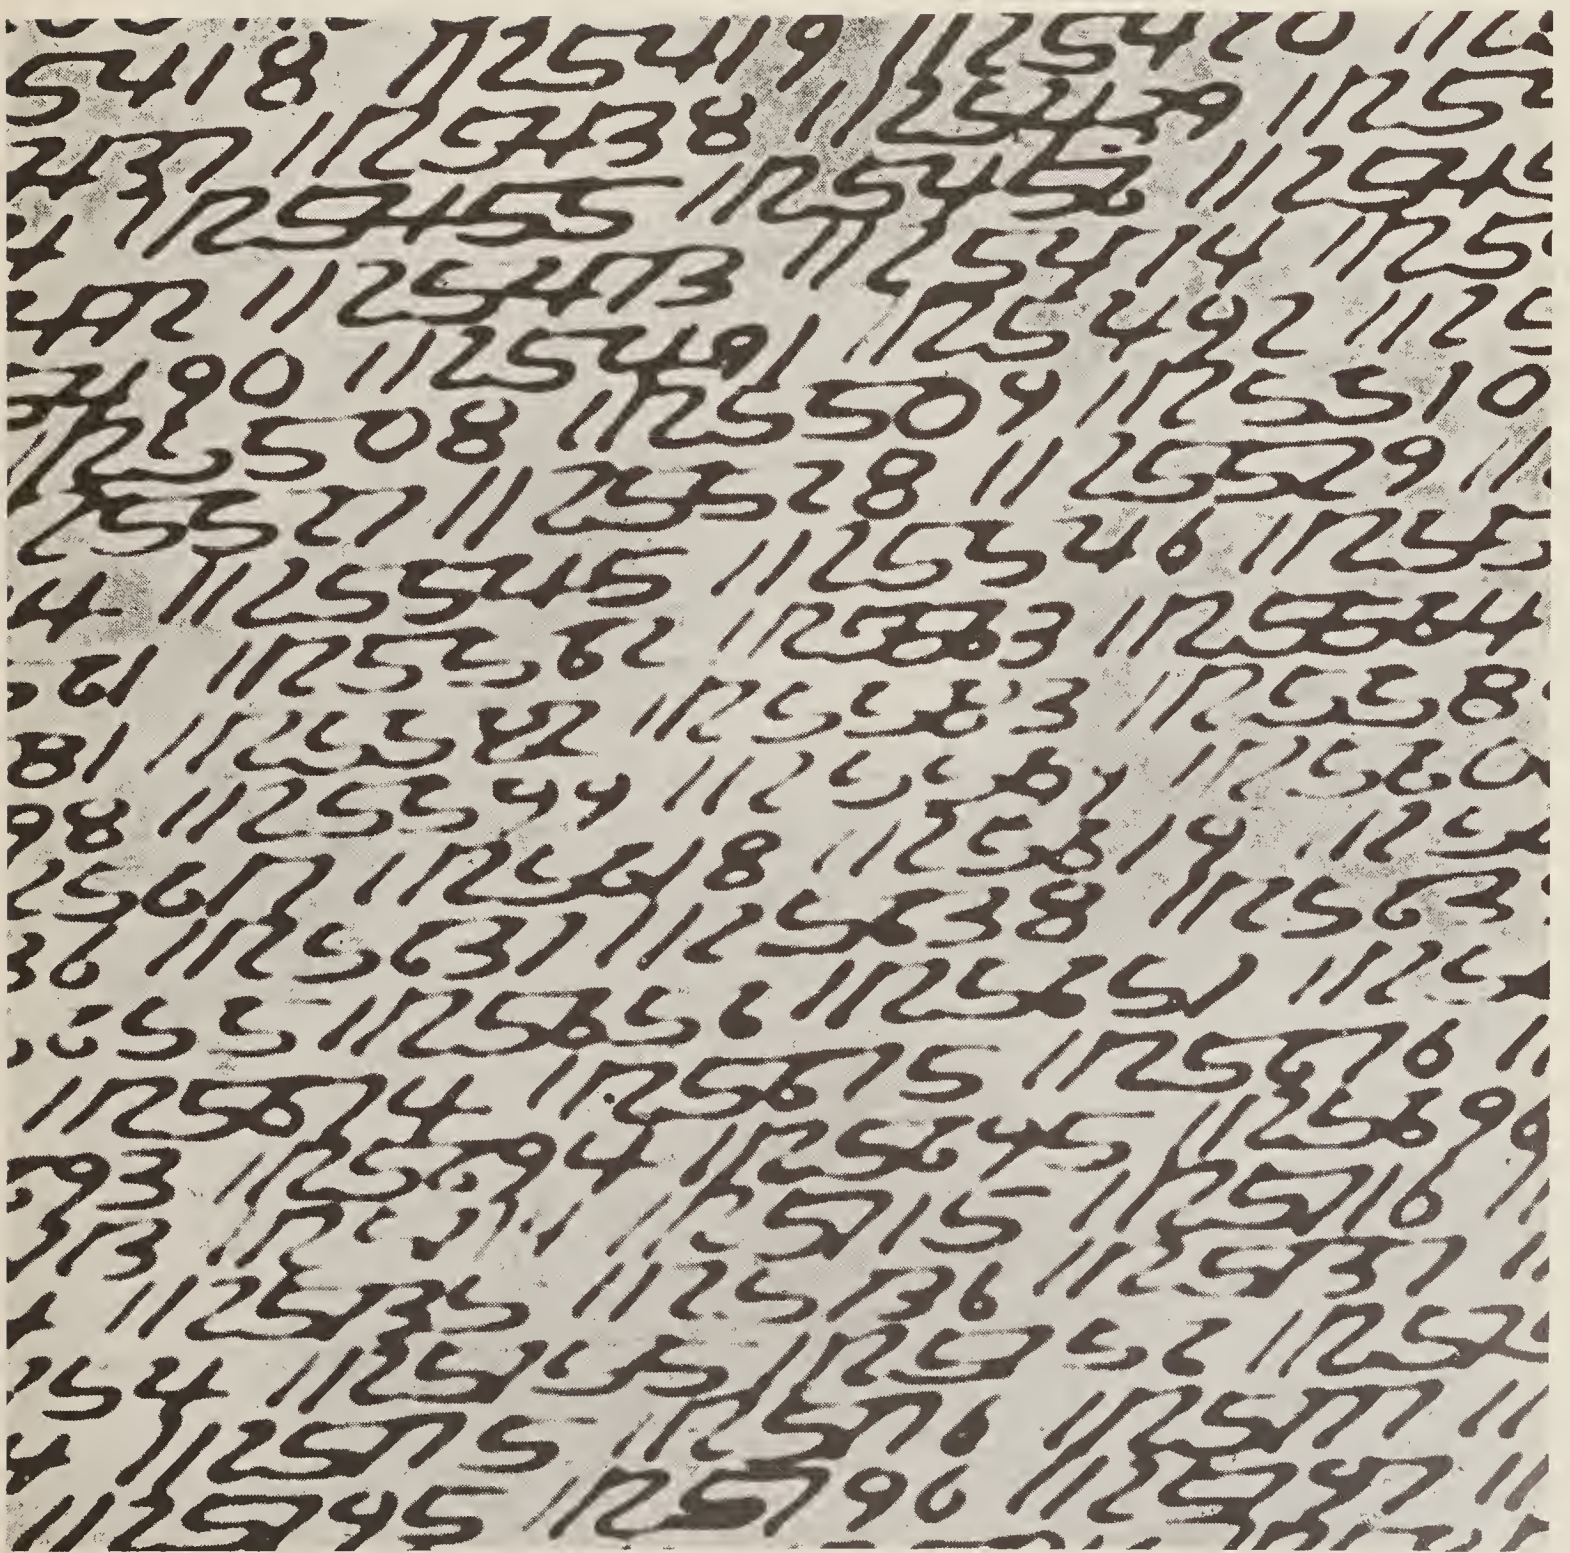 5418 1125419 1125420 112
437 1125438 1125439 11254
4 1125455 1125456 112545
472 1125473 1125474 1125
5490 1125491 1125492 1125
1125508 1125509 1125510
25527 1125528 1125529 11
4 1125545 1125546 112554
561 1125562 1125563 1125564
81 1125582 1125583 112558
98 1125599 1125600
25617 1125618 1125619 1125
36 1125637 1125638 112563
5655 1125656 1125657 1125
1125674 1125675 1125676 11
693 1125694 1125695 1125696
713 1125714 1125715 1125716 11
4 1125735 1125736 1125737 11
754 1125755 1125752 11257
4 1125775 1125776 1125777 11
1125795 1125796 1125797 11